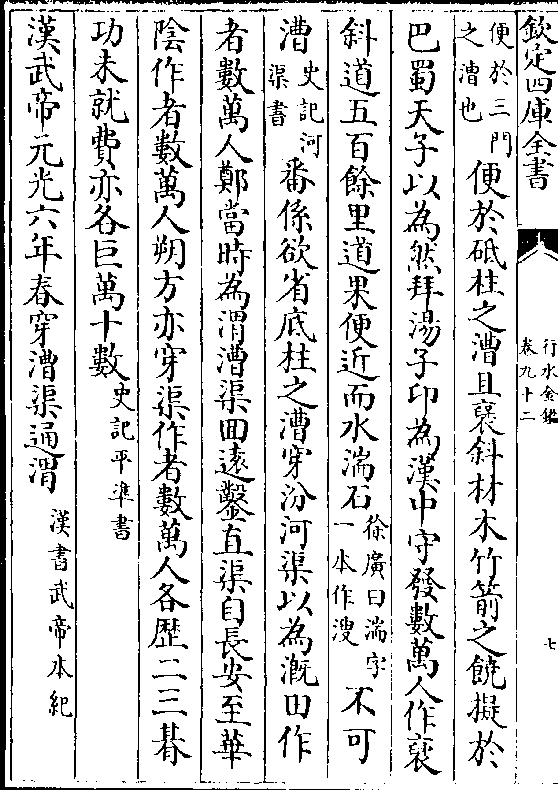 欽定四庫全書
行水金鑑
卷九十二
七
便於三門
之漕也
便於砥柱之漕且襃斜材木竹箭之饒擬於
巴蜀天子以為然拜湯子印為漢中守發數萬人作襃
斜道五百餘里道果便近而水湍石
徐廣曰湍字
一本作溲
不可
漕
史記河
渠書
番係欲省底柱之漕穿汾河渠以為溉田作
者數萬人鄭當時為渭漕渠回遠鑿直渠自長安至華
陰作者數萬人朔方亦穿渠作者數萬人各歷二三朞
功未就費亦各巨萬十數
史記平準書
漢武帝元光六年春穿漕渠通渭
漢書武帝本紀